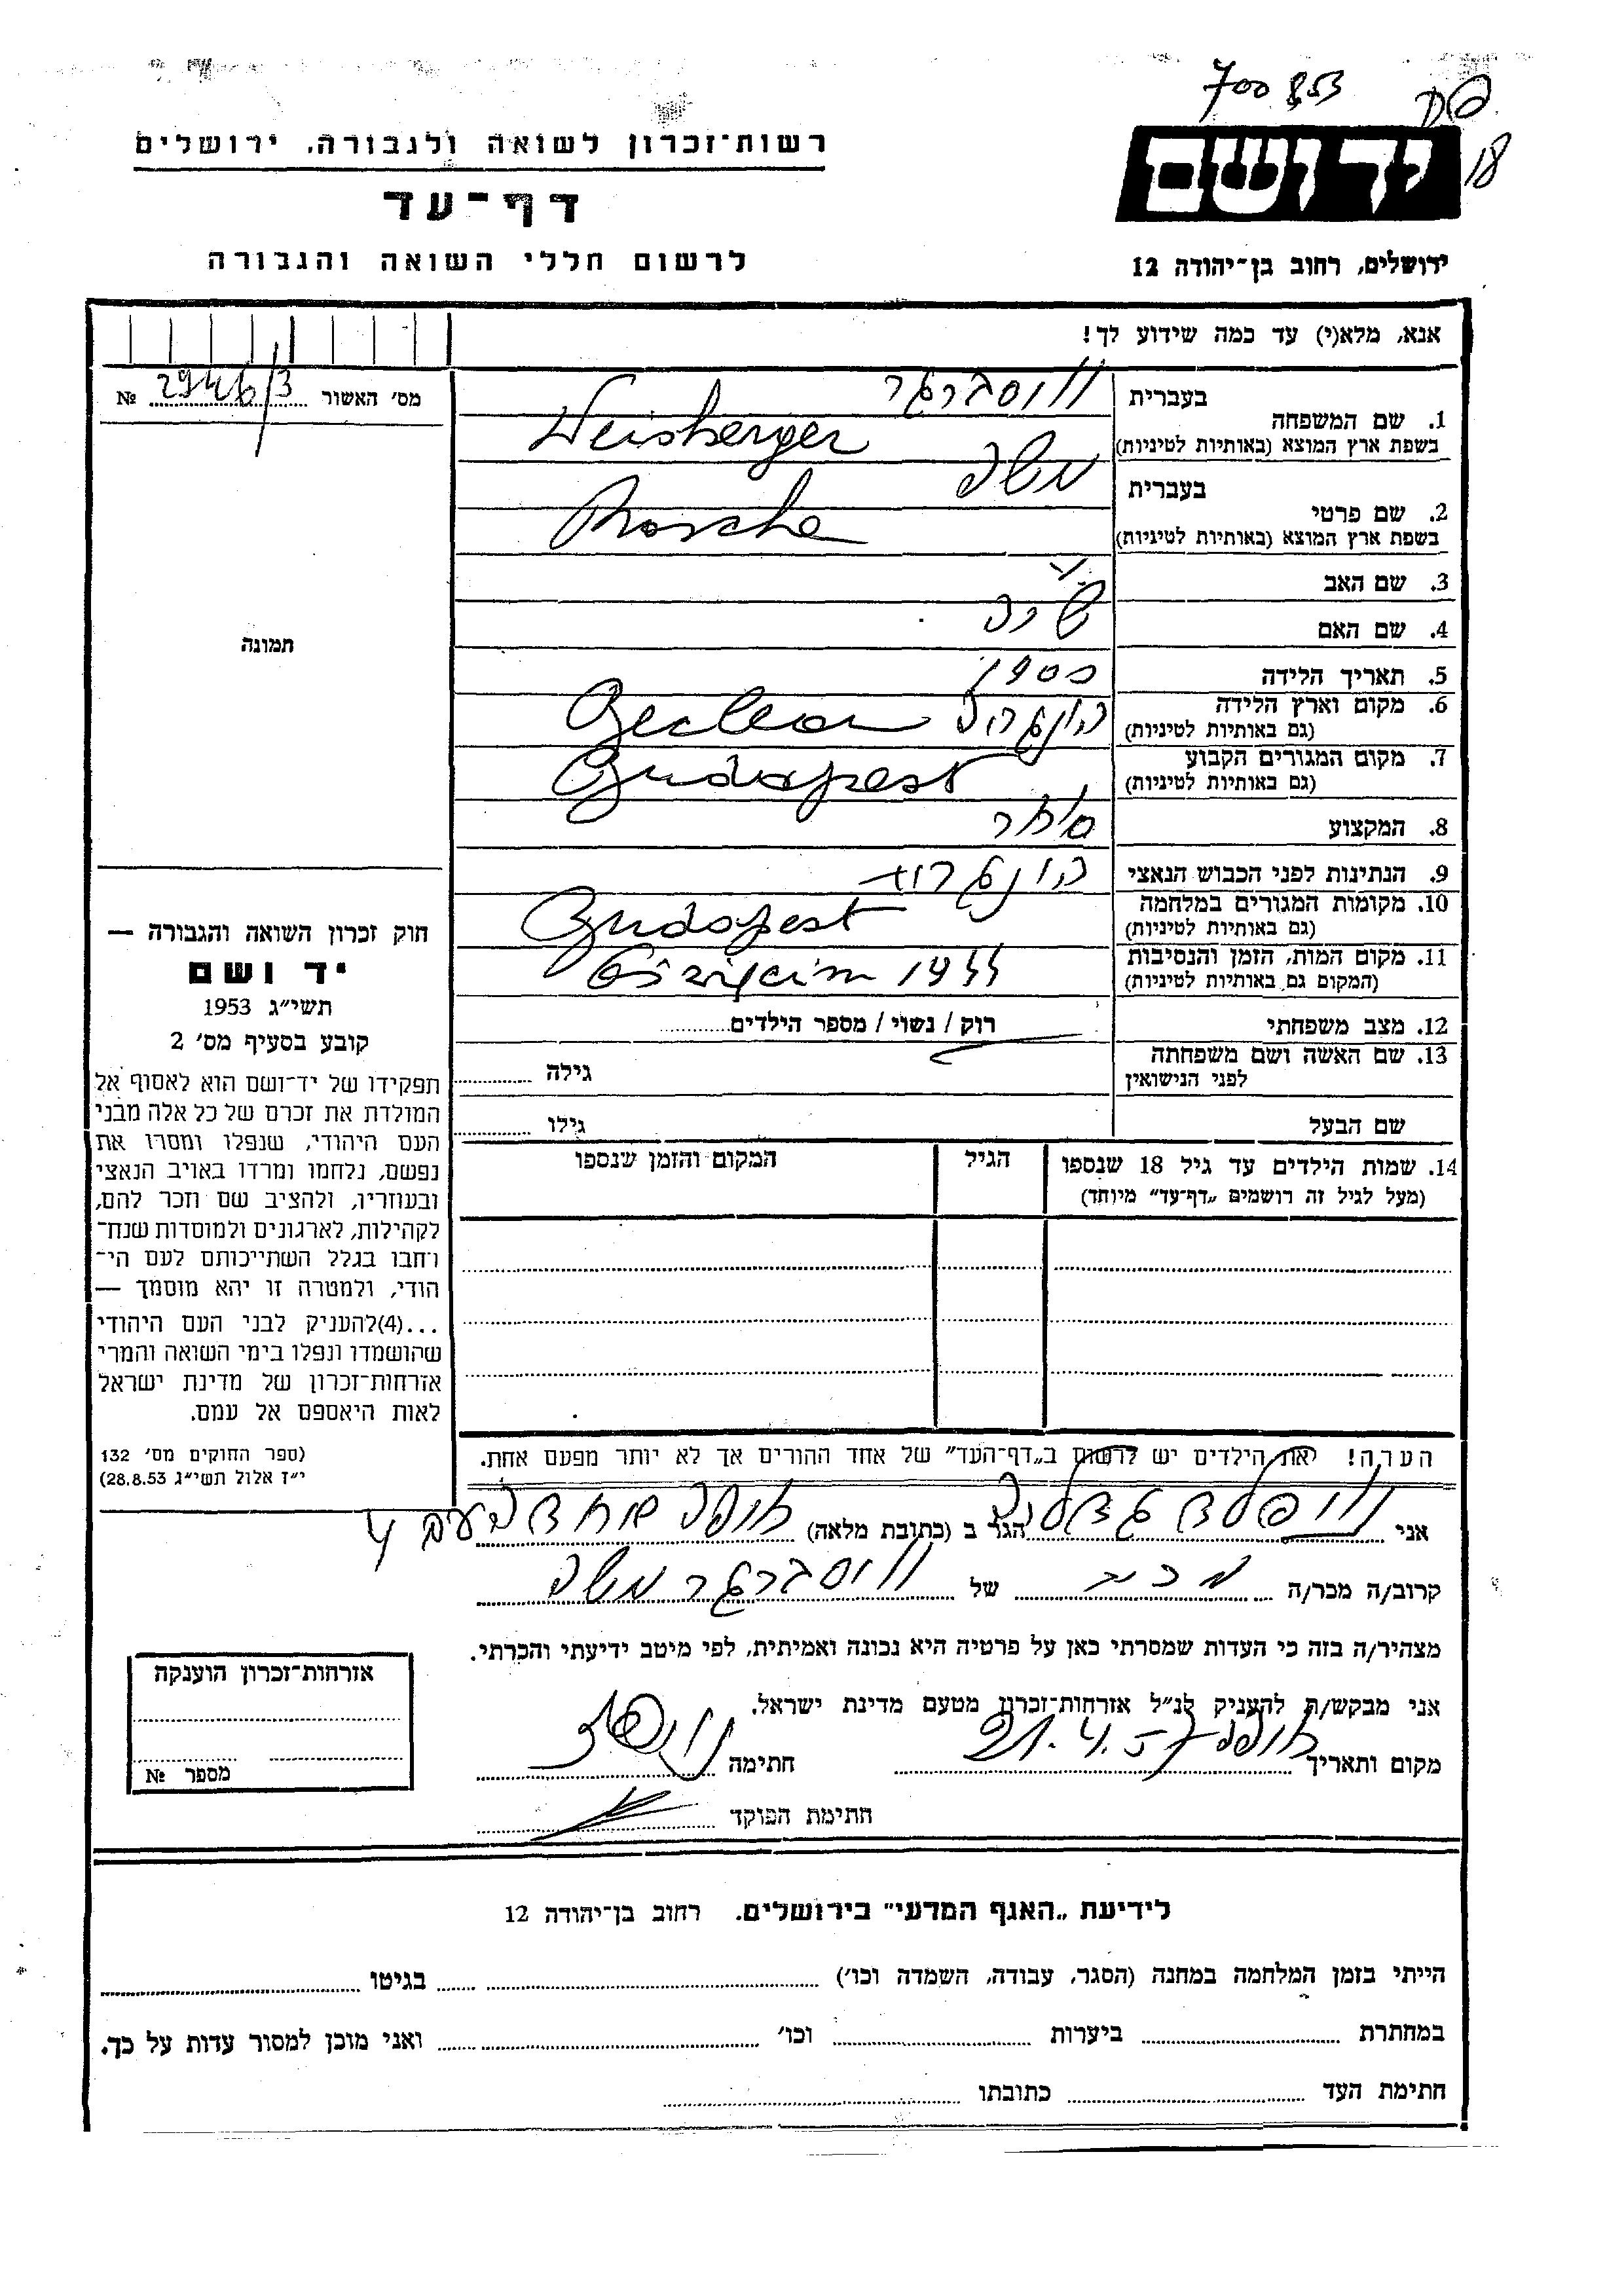 700853
18
יד ושם
רשות־זכרון לשואה ולגבורה, ירושלים
דף־עד
לרשום חללי השואה והגבורה
ירושלים, רחוב בן־יהודה 12
אנא, מלא(י) עד כמה שידוע לך!
מס׳ האשור 29426/3 №
תמונה
1. שם המשפחה
בעברית
בשפת ארץ המוצא (באותיות לטיניות) Weisberger
2. שם פרטי
בעברית משה
בשפת ארץ המוצא (באותיות לטיניות) Mosche
3. שם האב
4. שם האם
5. תאריך הלידה 1900
6. מקום וארץ הלידה
(גם באותיות לטיניות) Beclean
7. מקום המגורים הקבוע
(גם באותיות לטיניות) Budapest
8. המקצוע סוחר
9. הנתינות לפני הכבוש הנאצי
10. מקומות המגורים במלחמה
(גם באותיות לטיניות) Budapest
11. מקום המות, הזמן והנסיבות
(המקום גם באותיות לטיניות) 1944
12. מצב משפחתי רוק / נשוי / מספר הילדים
13. שם האשה ושם משפחתה
לפני הנישואין גילה
שם הבעל גילו
14. שמות הילדים עד גיל 18 שנספו
(מעל לגיל זה רושמים „דף־עד” מיוחד)
הגיל
המקום והזמן שנספו
חוק זכרון השואה והגבורה —
יד ושם
תשי״ג 1953
קובע בסעיף מס׳ 2
תפקידו של יד־ושם הוא לאסוף אל
המולדת את זכרם של כל אלה מבני
העם היהודי, שנפלו ומסרו את
נפשם, נלחמו ומרדו באויב הנאצי
ובעוזריו, ולהציב שם וזכר להם,
לקהילות, לארגונים ולמוסדות שנח־
רחבו בגלל השתייכותם לעם הי־
הודי, ולמטרה זו יהא מוסמך —
...(4)להעניק לבני העם היהודי
שהושמדו ונפלו בימי השואה והמרי
אזרחות־זכרון של מדינת ישראל
לאות היאספם אל עמם.
(ספר החוקים מס׳ 132
י״ז אלול תשי״ג 28.8.53)
הערה! את הילדים יש לרשום ב„דף־העד” של אחד ההורים אך לא יותר מפעם אחת.
אני הגר ב (כתובת מלאה) חיפה
קרוב/ה מכר/ה של משה
מצהיר/ה בזה כי העדות שמסרתי כאן על פרטיה היא נכונה ואמיתית, לפי מיטב ידיעתי והכרתי.
אני מבקש/ת להעניק לנ״ל אזרחות־זכרון מטעם מדינת ישראל.
מקום ותאריך חיפה 21.4.57 חתימה
חתימת הפוקד
אזרחות־זכרון הוענקה
מספר №
לידיעת „האגף המדעי” בירושלים. רחוב בן־יהודה 12
הייתי בזמן המלחמה במחנה (הסגר, עבודה, השמדה וכו׳) בגיטו
במחתרת ביערות וכו׳ ואני מוכן למסור עדות על כך.
חתימת העד כתובתו